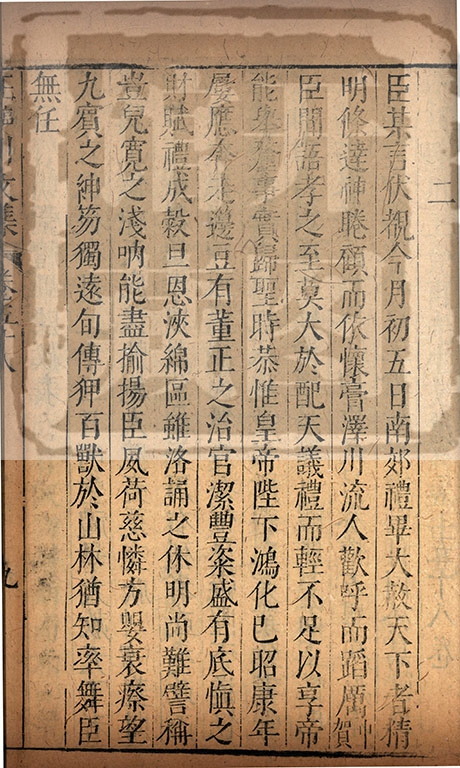 二
臣某言伏覩今月初五日南郊禮畢大赦天下者精
明絛達神睠顧而依懷膏澤川流人歡呼而蹈厲中賀
臣聞語孝之至莫大於配天議禮而輕不足以享帝
能舉事實歸聖時恭惟皇帝陛下鴻化已昭康年
屢應奉邊豆有董正之治官潔豐粢盛有底慎之
財賦禮成穀旦恩浹綿區雖洛誦之休明尚難譬稱
豈兒寬之淺吶能盡揄揚臣夙荷慈憐方嬰衰瘵望
九賓之紳笏獨遠句傳狎百獸於山林猶知率舞臣
無任
文集
九